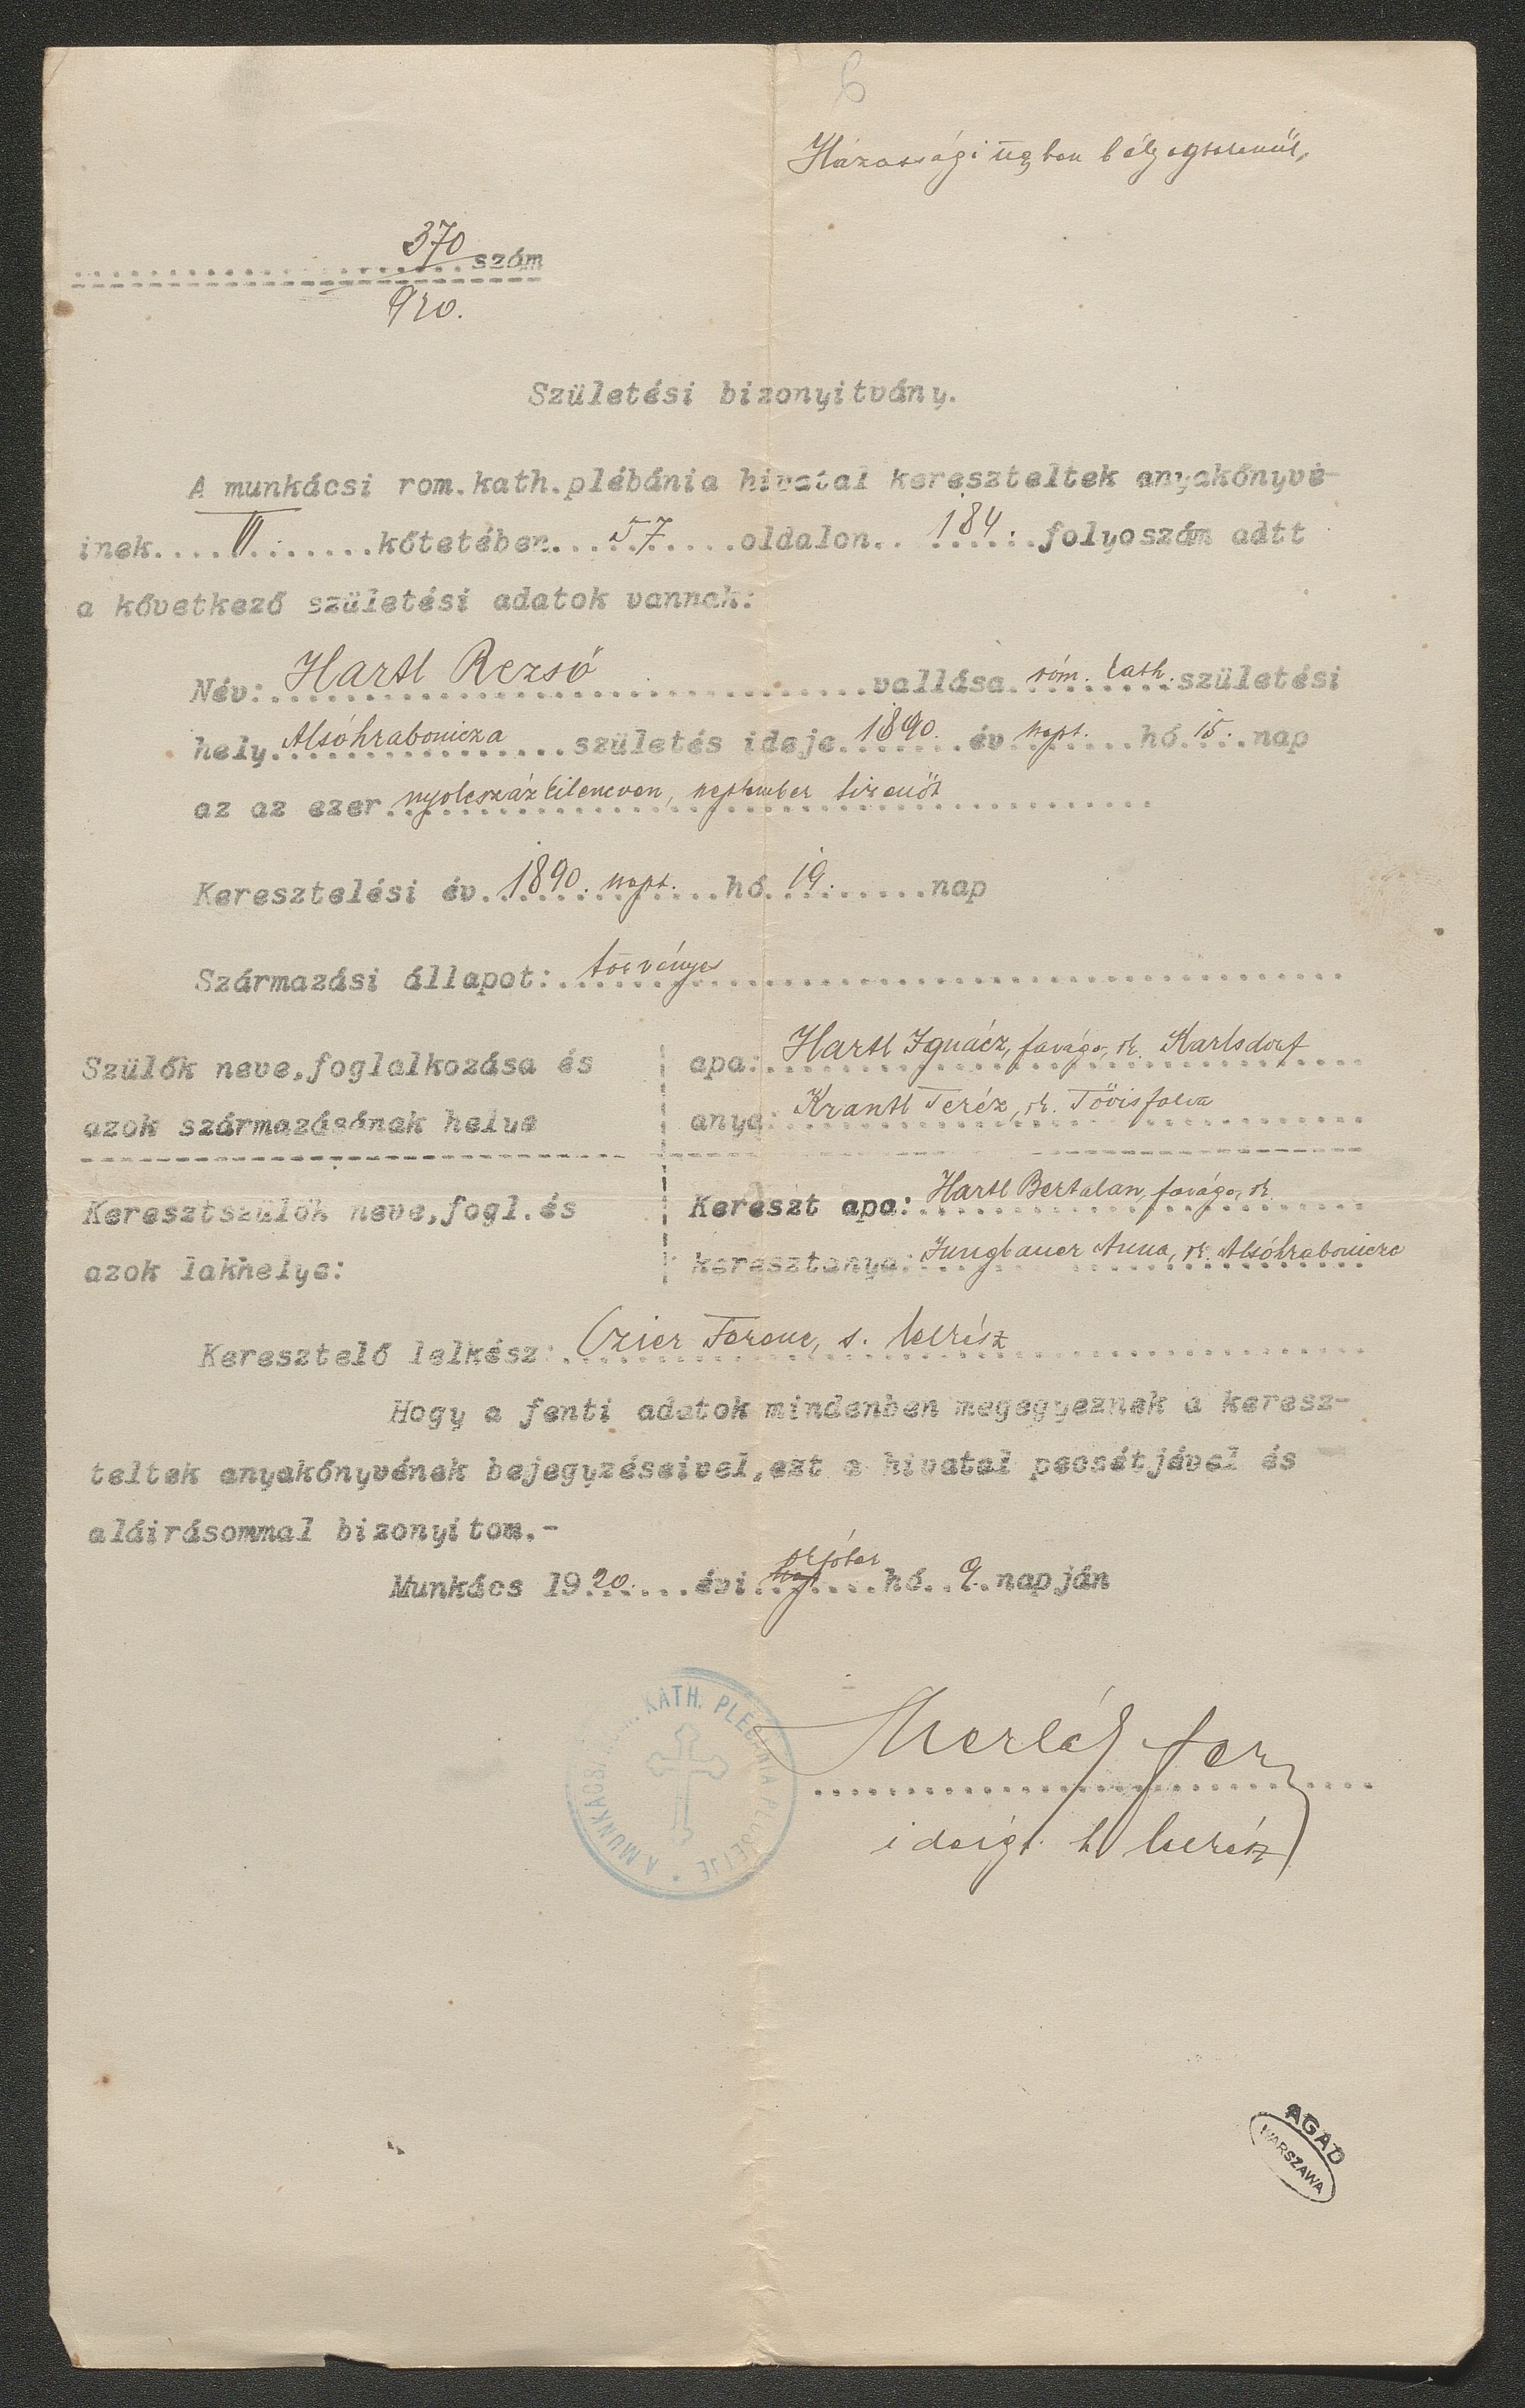 6
Házassági ügyben bélyegtelenül,
370 szám
920.
Születési bizonyitvány.
A munkácsi rom.kath.plébánia hivatal kereszteltek anyakőnyve-
inek....VI.......kőtetében....57......oldalon.. 184. folyoszám adtt
a kővetkező születési adatok vannak:
Név: Hartl Rezső vallása róm. kath. születési
hely Alsóhrabonicza születés ideje 1890. év szept. hó 15. nap
az az ezer nyolcszázkilencven, szeptember tizenöt
Keresztelési év 1890. szept. hó 19. nap
Származási állapot: törvényes
Szülők neve,foglalkozása és
azok származásának helye
apa: Hartl Ignácz, favágó, rk. Karlsdorf
anya: Krantl Teréz, rk. Tövisfalva
Keresztszülők neve,fogl.és
azok lakhelye:
Kereszt apa: Hartl Bertalan, favágó, rk.
keresztanya: Jungbauer Anna, rk. Alsóhrabonicza
Keresztelő lelkész: Czier Ferenc, s. lelkész
Hogy a fenti adatok mindenben megegyeznek a keresz-
teltek anyakőnyvének bejegyzéseivel,ezt a hivatal pecsétjével és
aláirásommal bizonyitom.-
Munkács 1920. évi október hó 9. napján
A MUNKÁCSI RÓM. KATH. PLÉBÁNIA PECSÉTJE
ideigl. h. lelkész
AGAD
WARSZAWA